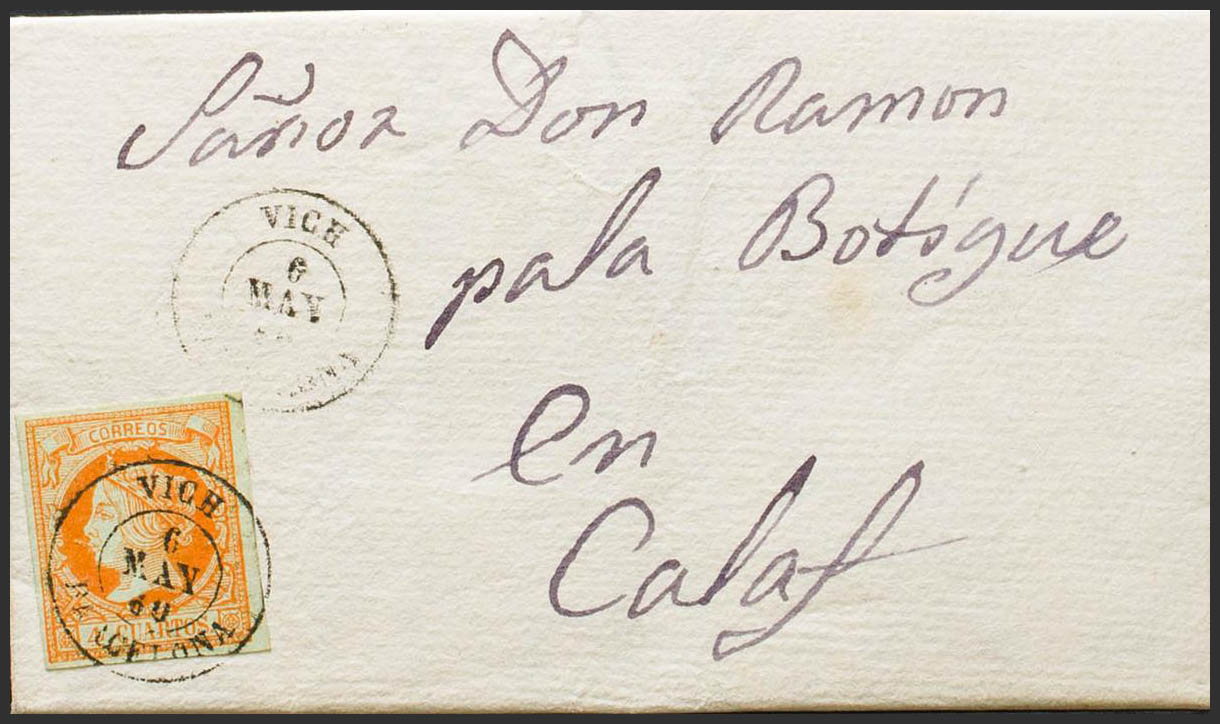 Sañor Don Ramon
pala Botigue
en
Calaf
VICH
6
MAY
VICH
6
MAY
60
BARCELONA
CORREOS
4 CUARTOS